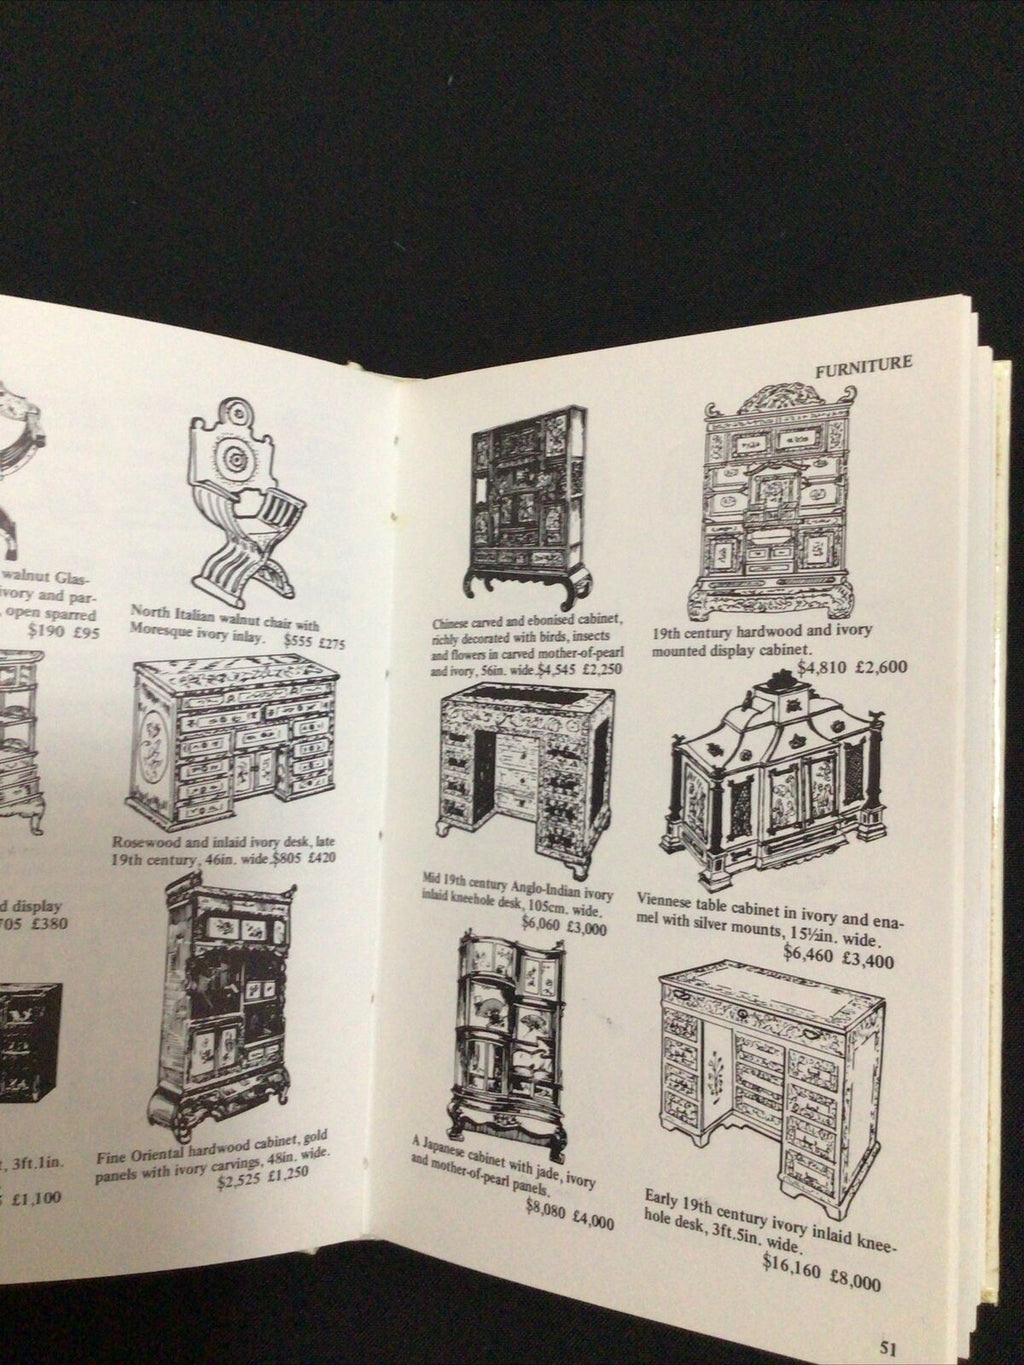 walnut Glas-
ivory and par-
, open sparred
$190 £95
North Italian walnut chair with
Moresque ivory inlay. $555 £275
Rosewood and inlaid ivory desk, late
19th century, 46in. wide.$805 £420
d display
705 £380
t, 3ft.1in.
£1,100
Fine Oriental hardwood cabinet, gold
panels with ivory carvings, 48in. wide.
$2,525 £1,250
FURNITURE
Chinese carved and ebonised cabinet,
richly decorated with birds, insects
and flowers in carved mother-of-pearl
and ivory, 56in. wide.$4,545 £2,250
19th century hardwood and ivory
mounted display cabinet.
$4,810 £2,600
Mid 19th century Anglo-Indian ivory
inlaid kneehole desk, 105cm. wide.
$6,060 £3,000
Viennese table cabinet in ivory and ena-
mel with silver mounts, 15½in. wide.
$6,460 £3,400
A Japanese cabinet with jade, ivory
and mother-of-pearl panels.
$8,080 £4,000
Early 19th century ivory inlaid knee-
hole desk, 3ft.5in. wide.
$16,160 £8,000
51